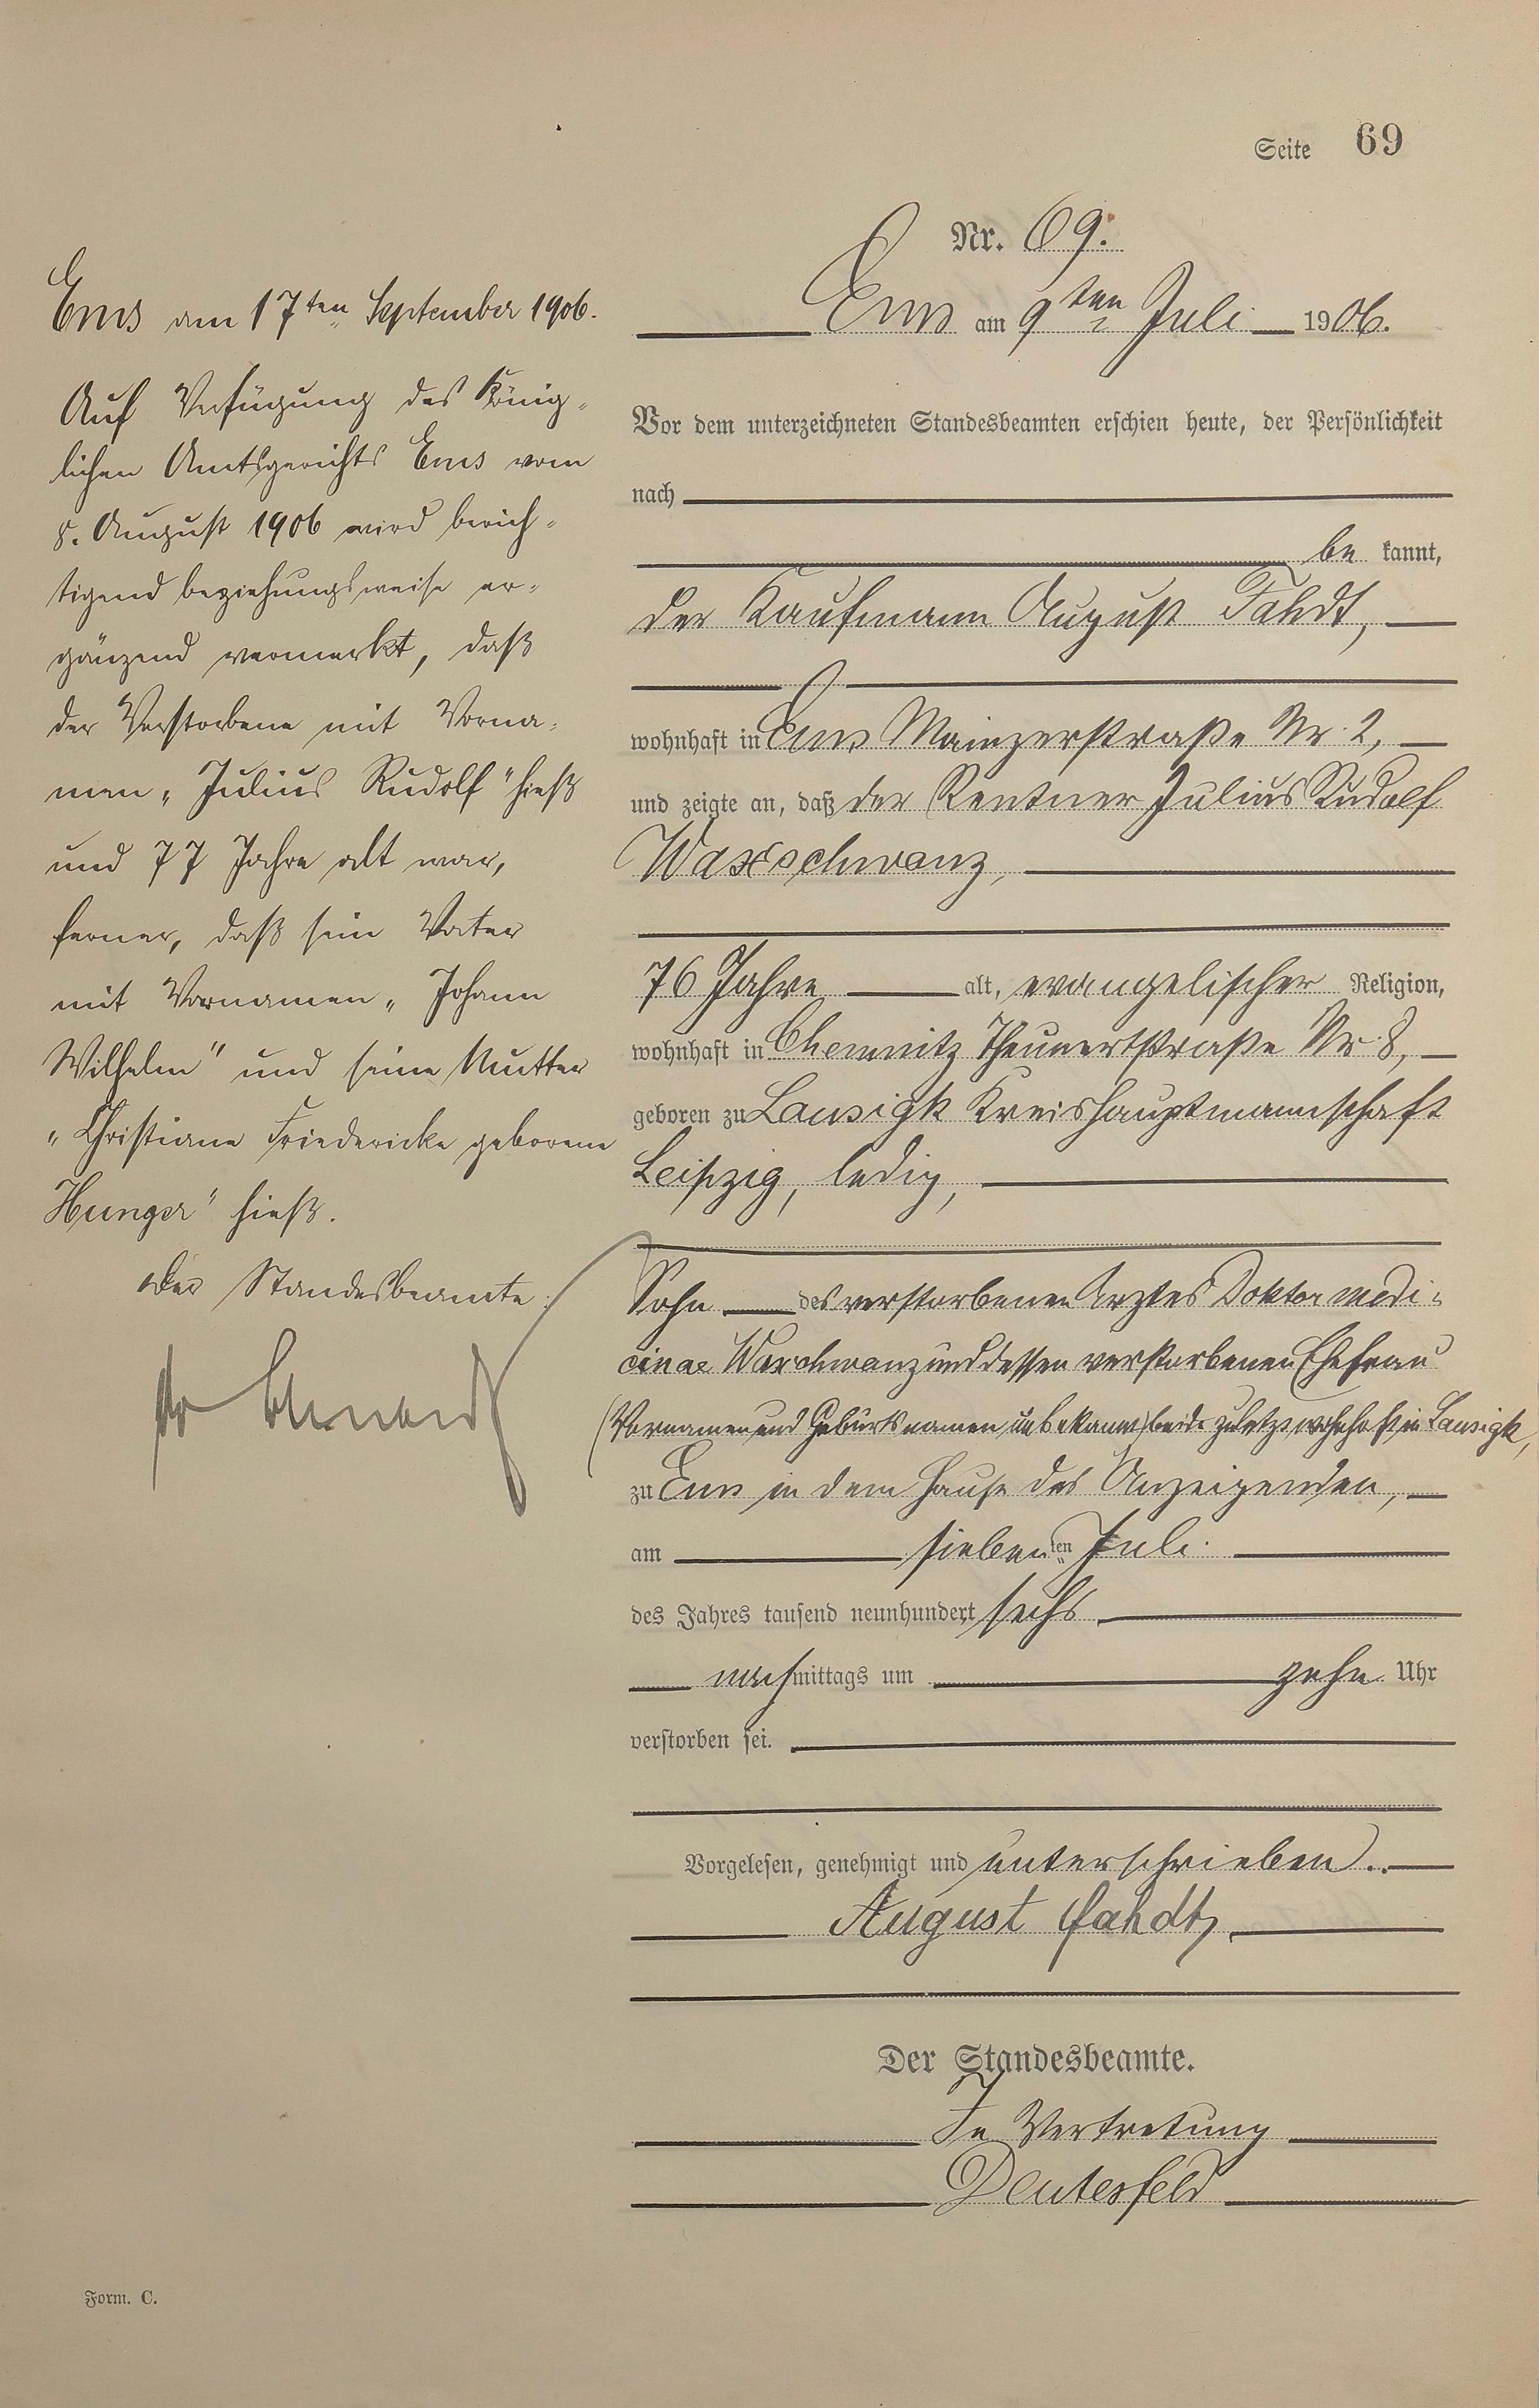 Seite 69
Nr. 69.
Ems am 9ten Juli 1906.
Vor dem unterzeichneten Standesbeamten erschien heute, der Persönlichkeit
nach
be kannt,
der Kaufmann August Fahdt,
wohnhaft in Ems Mainzerstraße Nr. 2,
und zeigte an, daß der Rentner Julius Rudolf
Waxschwanz,
76 Jahre alt, evangelischer Religion,
wohnhaft in Chemnitz Theunertstraße Nr. 8,
geboren zu Lausigk Kreishauptmannschaft
Leipzig, ledig,
Sohn des verstorbenen Arztes Doktor medi=
cinae Waxschwanz und dessen verstorbenen Ehefrau
(Vornamen und Geburtsnamen unbekannt) beide zuletzt wohnhaft in Lausigk,
zu Ems in dem Hause des Anzeigenden,
am siebenten Juli
des Jahres tausend neunhundert sechs
nachmittags um zehn Uhr
verstorben sei.
Vorgelesen, genehmigt und unterschrieben.
August Fahdt
Der Standesbeamte.
In Vertretung
Deutesfeld
Ems am 17ten September 1906.
Auf Verfügung des König=
lichen Amtsgerichts Ems vom
8. August 1906 wird berich=
tigend beziehungsweise er=
gänzend vermerkt, daß
der Verstorbene mit Vorna=
men „Julius Rudolf" hieß
und 77 Jahre alt war,
ferner, daß sein Vater
mit Vornamen „Johann
Wilhelm" und seine Mutter
„Christiane Friedericke geborene
Hunger" hieß.
Der Standesbeamte.
Form. C.